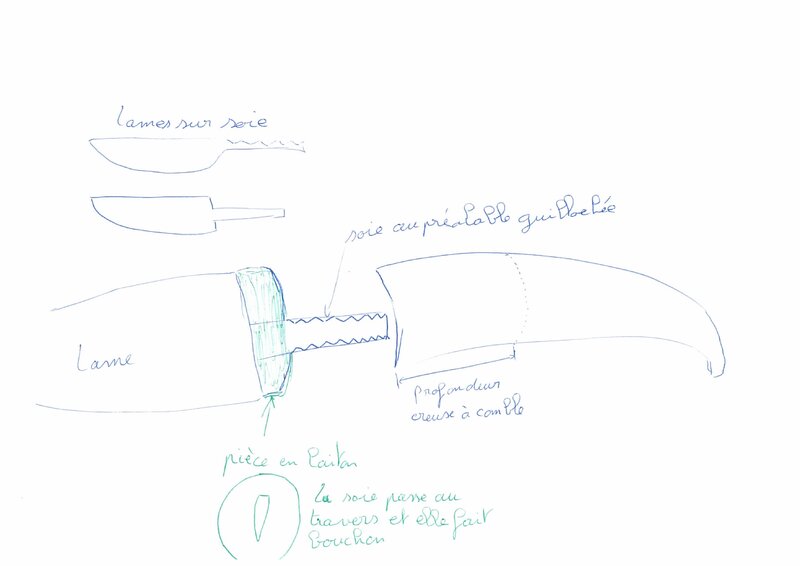 lames sur soie
soie au préalable guillochée
Lame
profondeur
creuse à comble
pièce en laiton
La soie passe au
travers et elle fait
bouchon